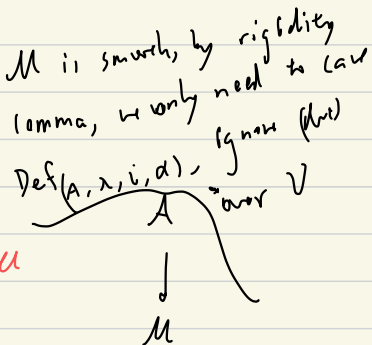 M is smooth, by rigidity
lemma, we only need to care
Def(A, λ, i, α), ignore (det)
over V
A
M
M